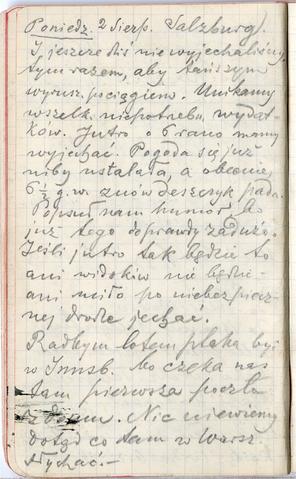 Poniedz. 2 Sierp. Salzburg
I jeszcze dziś nie wyjechaliśmy
tym razem, aby tańszym
wyrusz. pociągiem. Unikamy
wszelk. niepotrzebn. wydat-
ków. Jutro o 6 rano mamy
wyjechać. Pogoda się już
niby ustalała, a obecnie
6 ½ g. w. znów deszczyk pada.
Popsuł nam humor bo
już tego doprawdy zadużo.
Jeśli jutro tak będzie to
ani widoków nie będzie -
ani miło po niebezpiecz-
nej drodze jechać.
Radbym lotem ptaka być
w Innsb. bo czeka nas
tam pierwsza poczta
z domu. Nic niewiemy
dotąd co tam w Warsz.
słychać.-